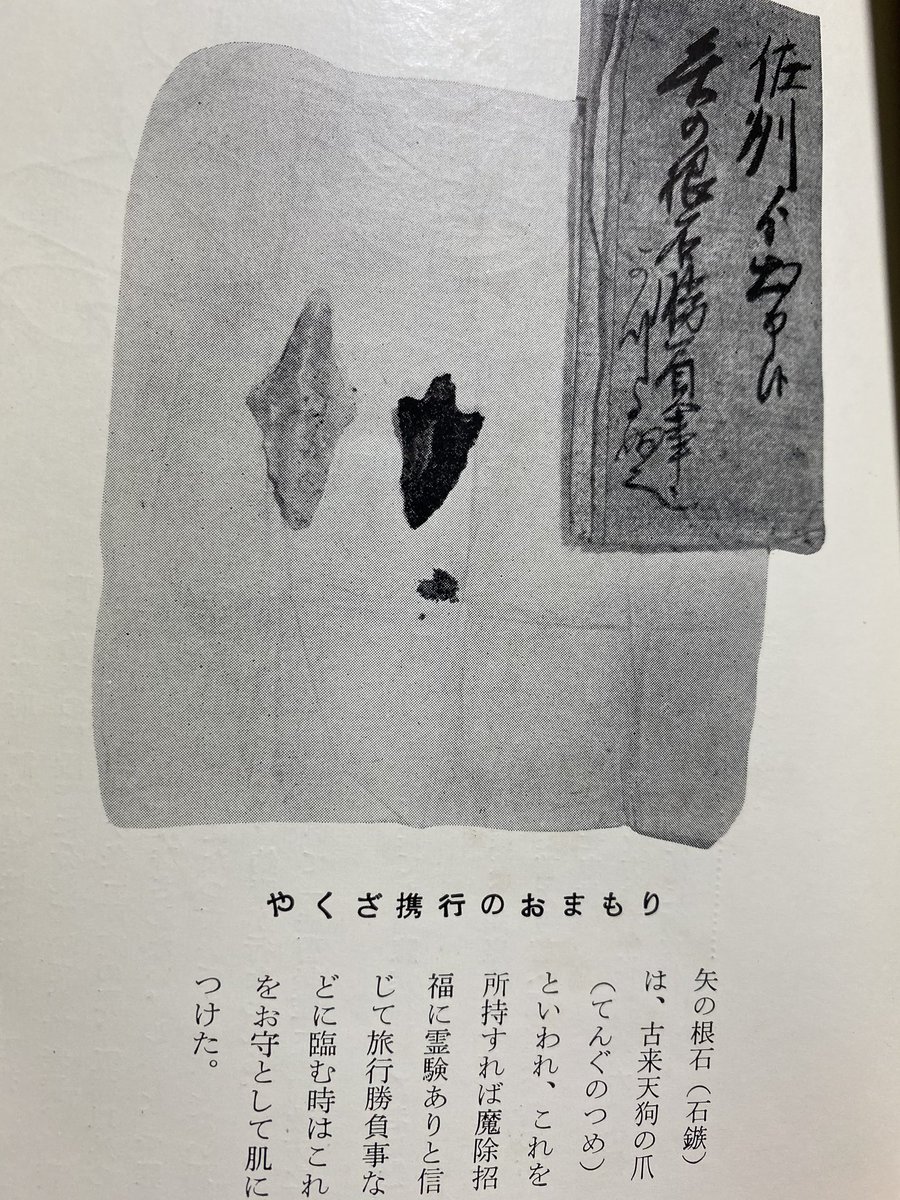 佐州
矢の根石勝負事
やくざ携行のおまもり
矢の根石（石鏃）
は、古来天狗の爪
（てんぐのつめ）
といわれ、これを
所持すれば魔除招
福に霊験ありと信
じて旅行勝負事な
どに臨む時はこれ
をお守として肌に
つけた。